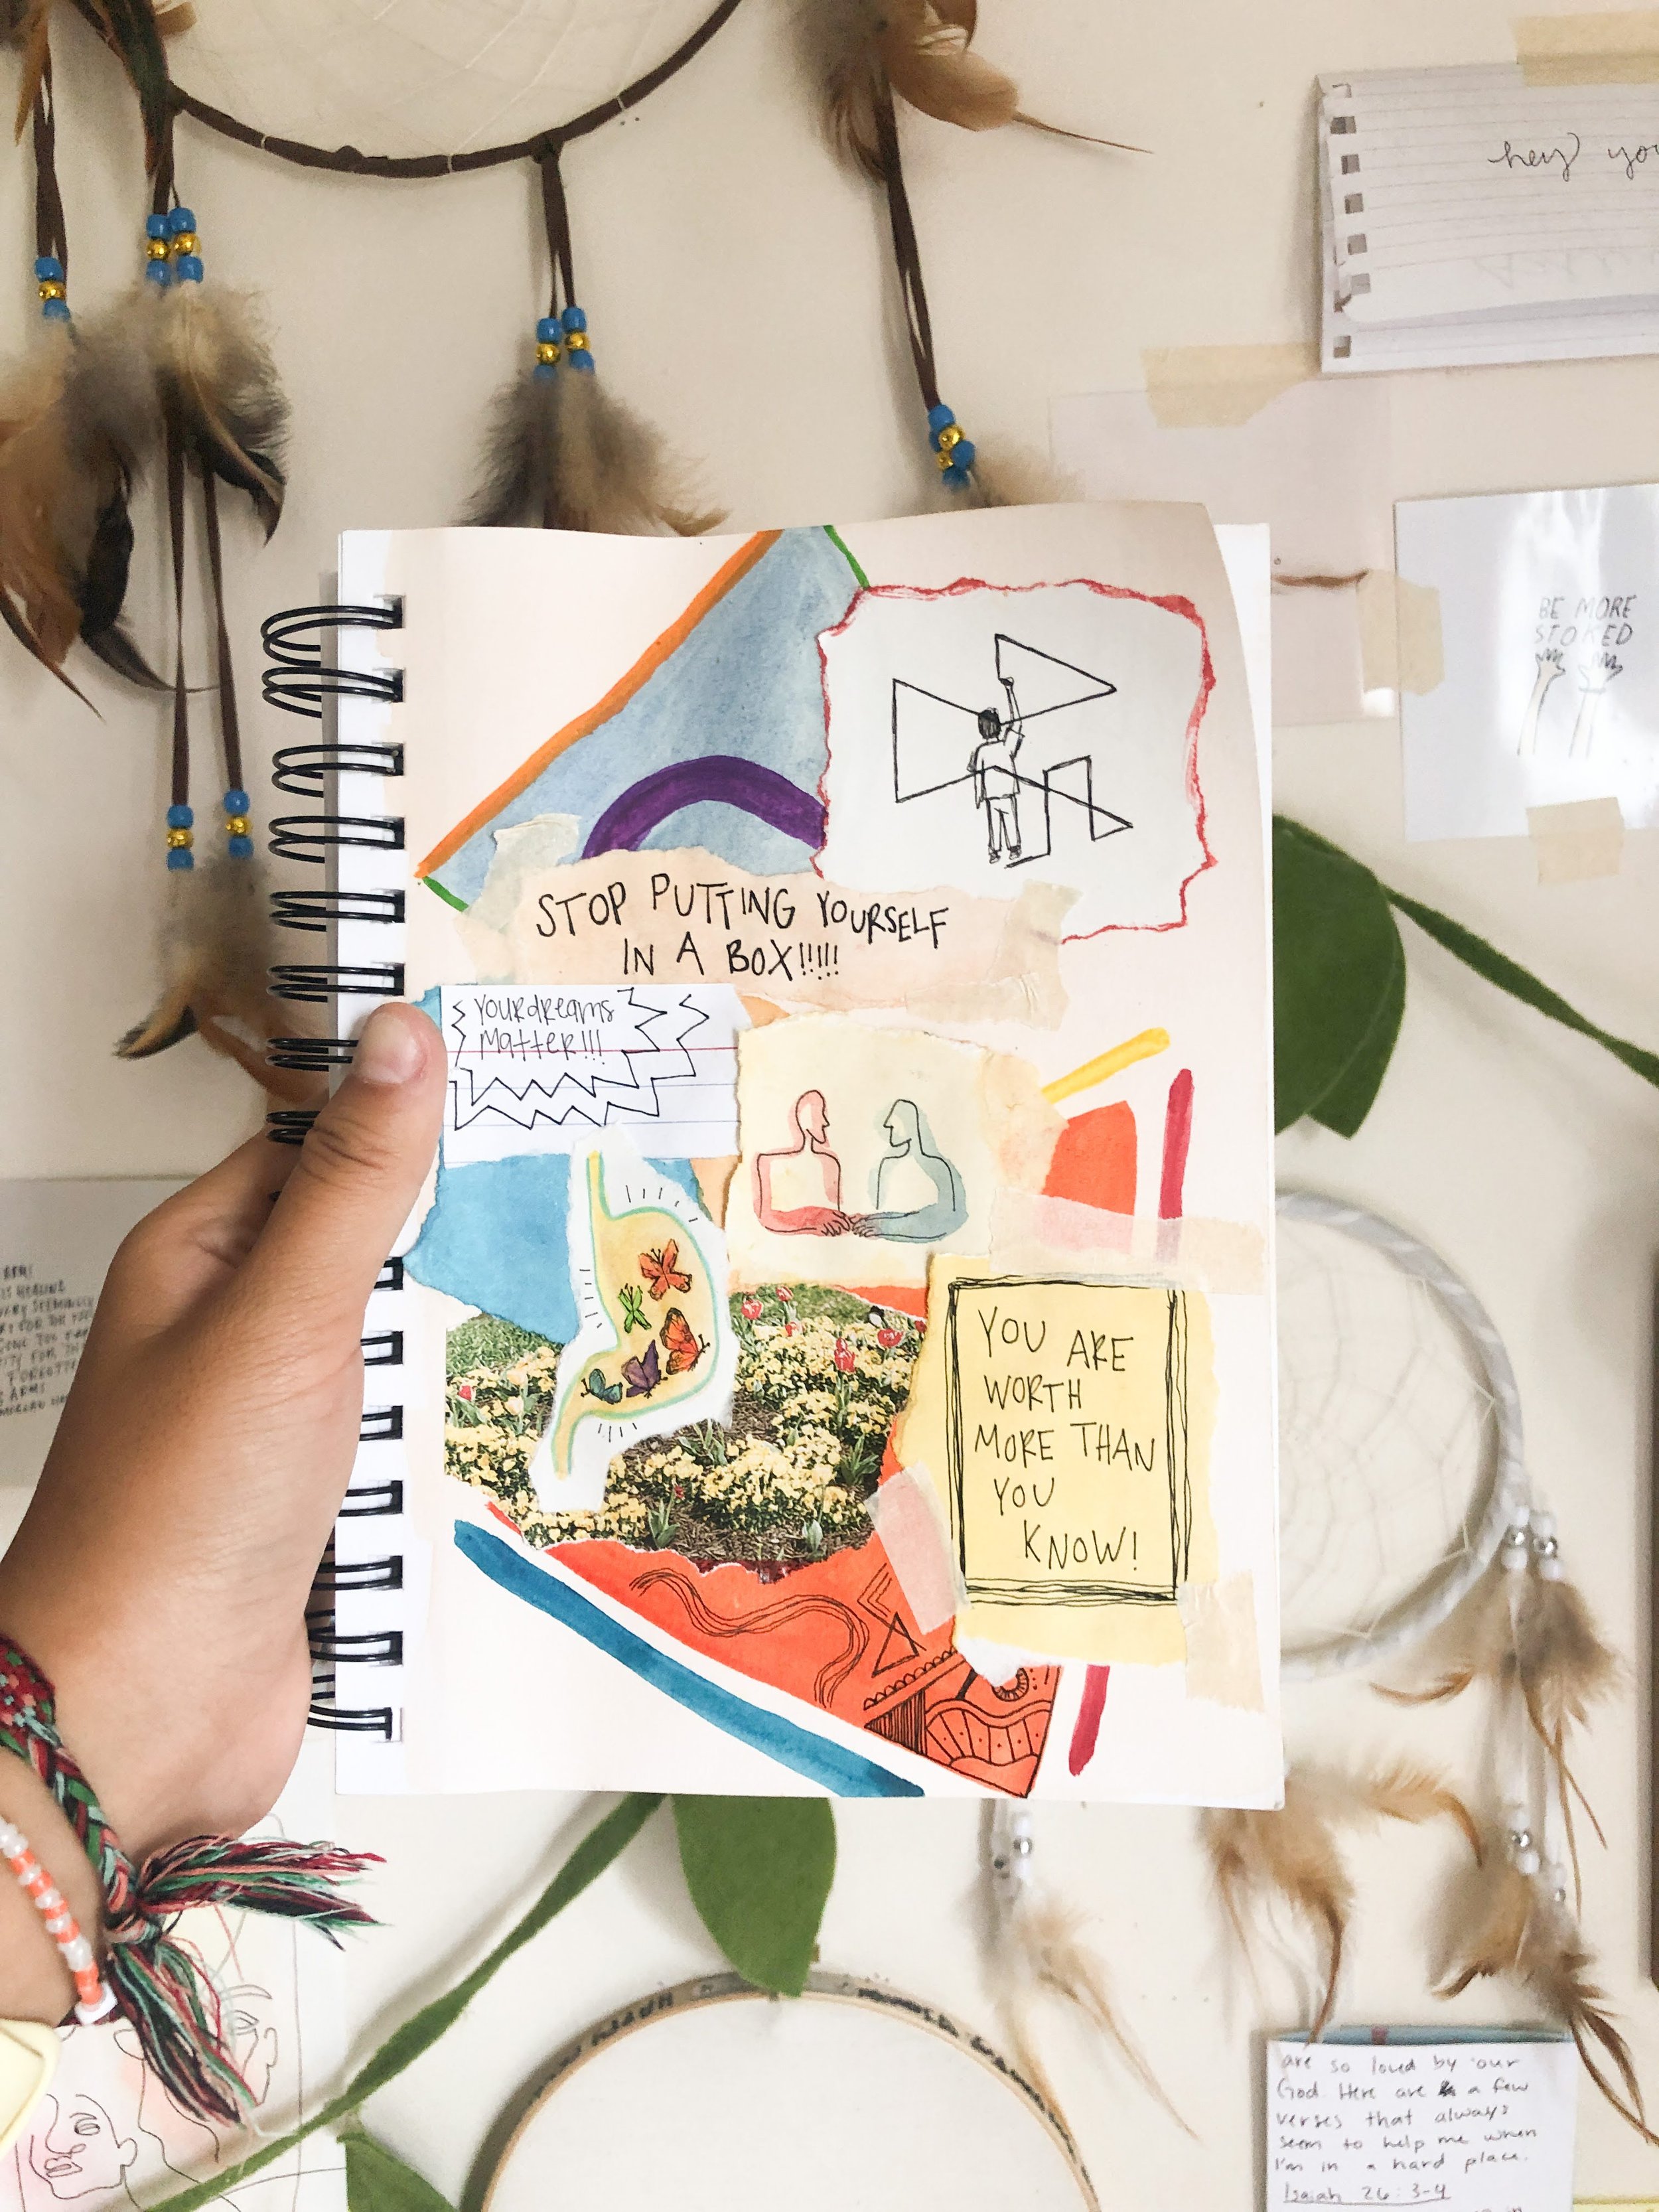 hey
BE MORE
STOKED
STOP PUTTING YOURSELF
IN A BOX!!!!!
YOUR dReams
MatteR!!!
YOU ARE
WORTH
MORE THAN
YOU
KNOW!
IS HEALING
SEEMINGLY
FOR THE
ARMS
are so loved by our
God. Here are a few
verses that always
seem to help me when
I'm in a hard place.
Isaiah 26:3-4